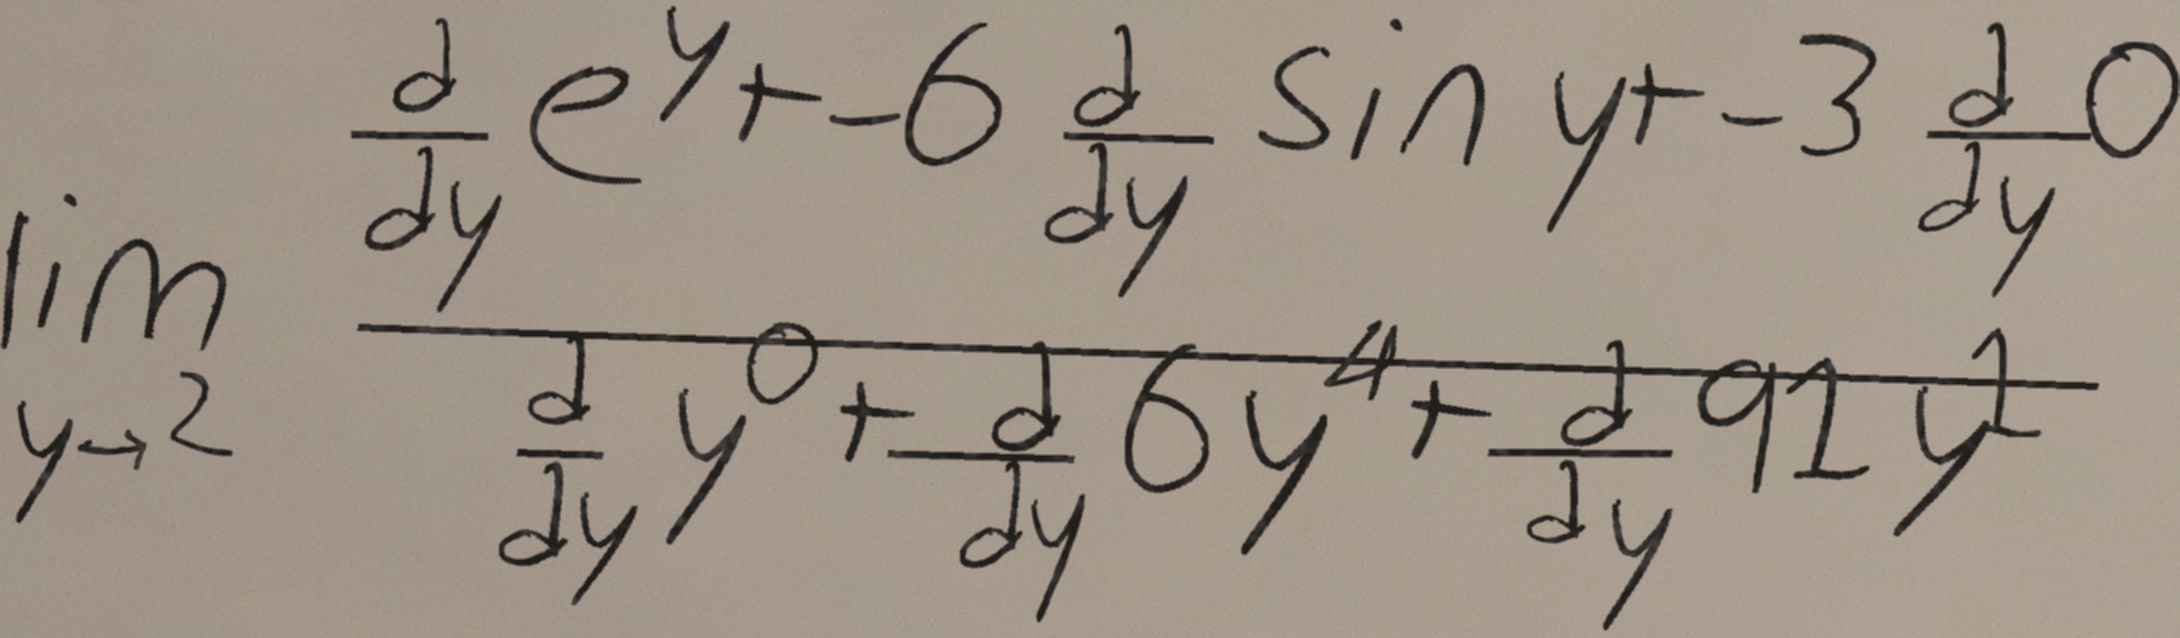 \lim_{y \to 2} \frac{\frac{d}{dy} e^{y} + -6 \frac{d}{dy} \sin y + -3 \frac{d}{dy} 0}{\frac{d}{dy} y^{0} + \frac{d}{dy} 6 y^{4} + \frac{d}{dy} 91 y^{1}}